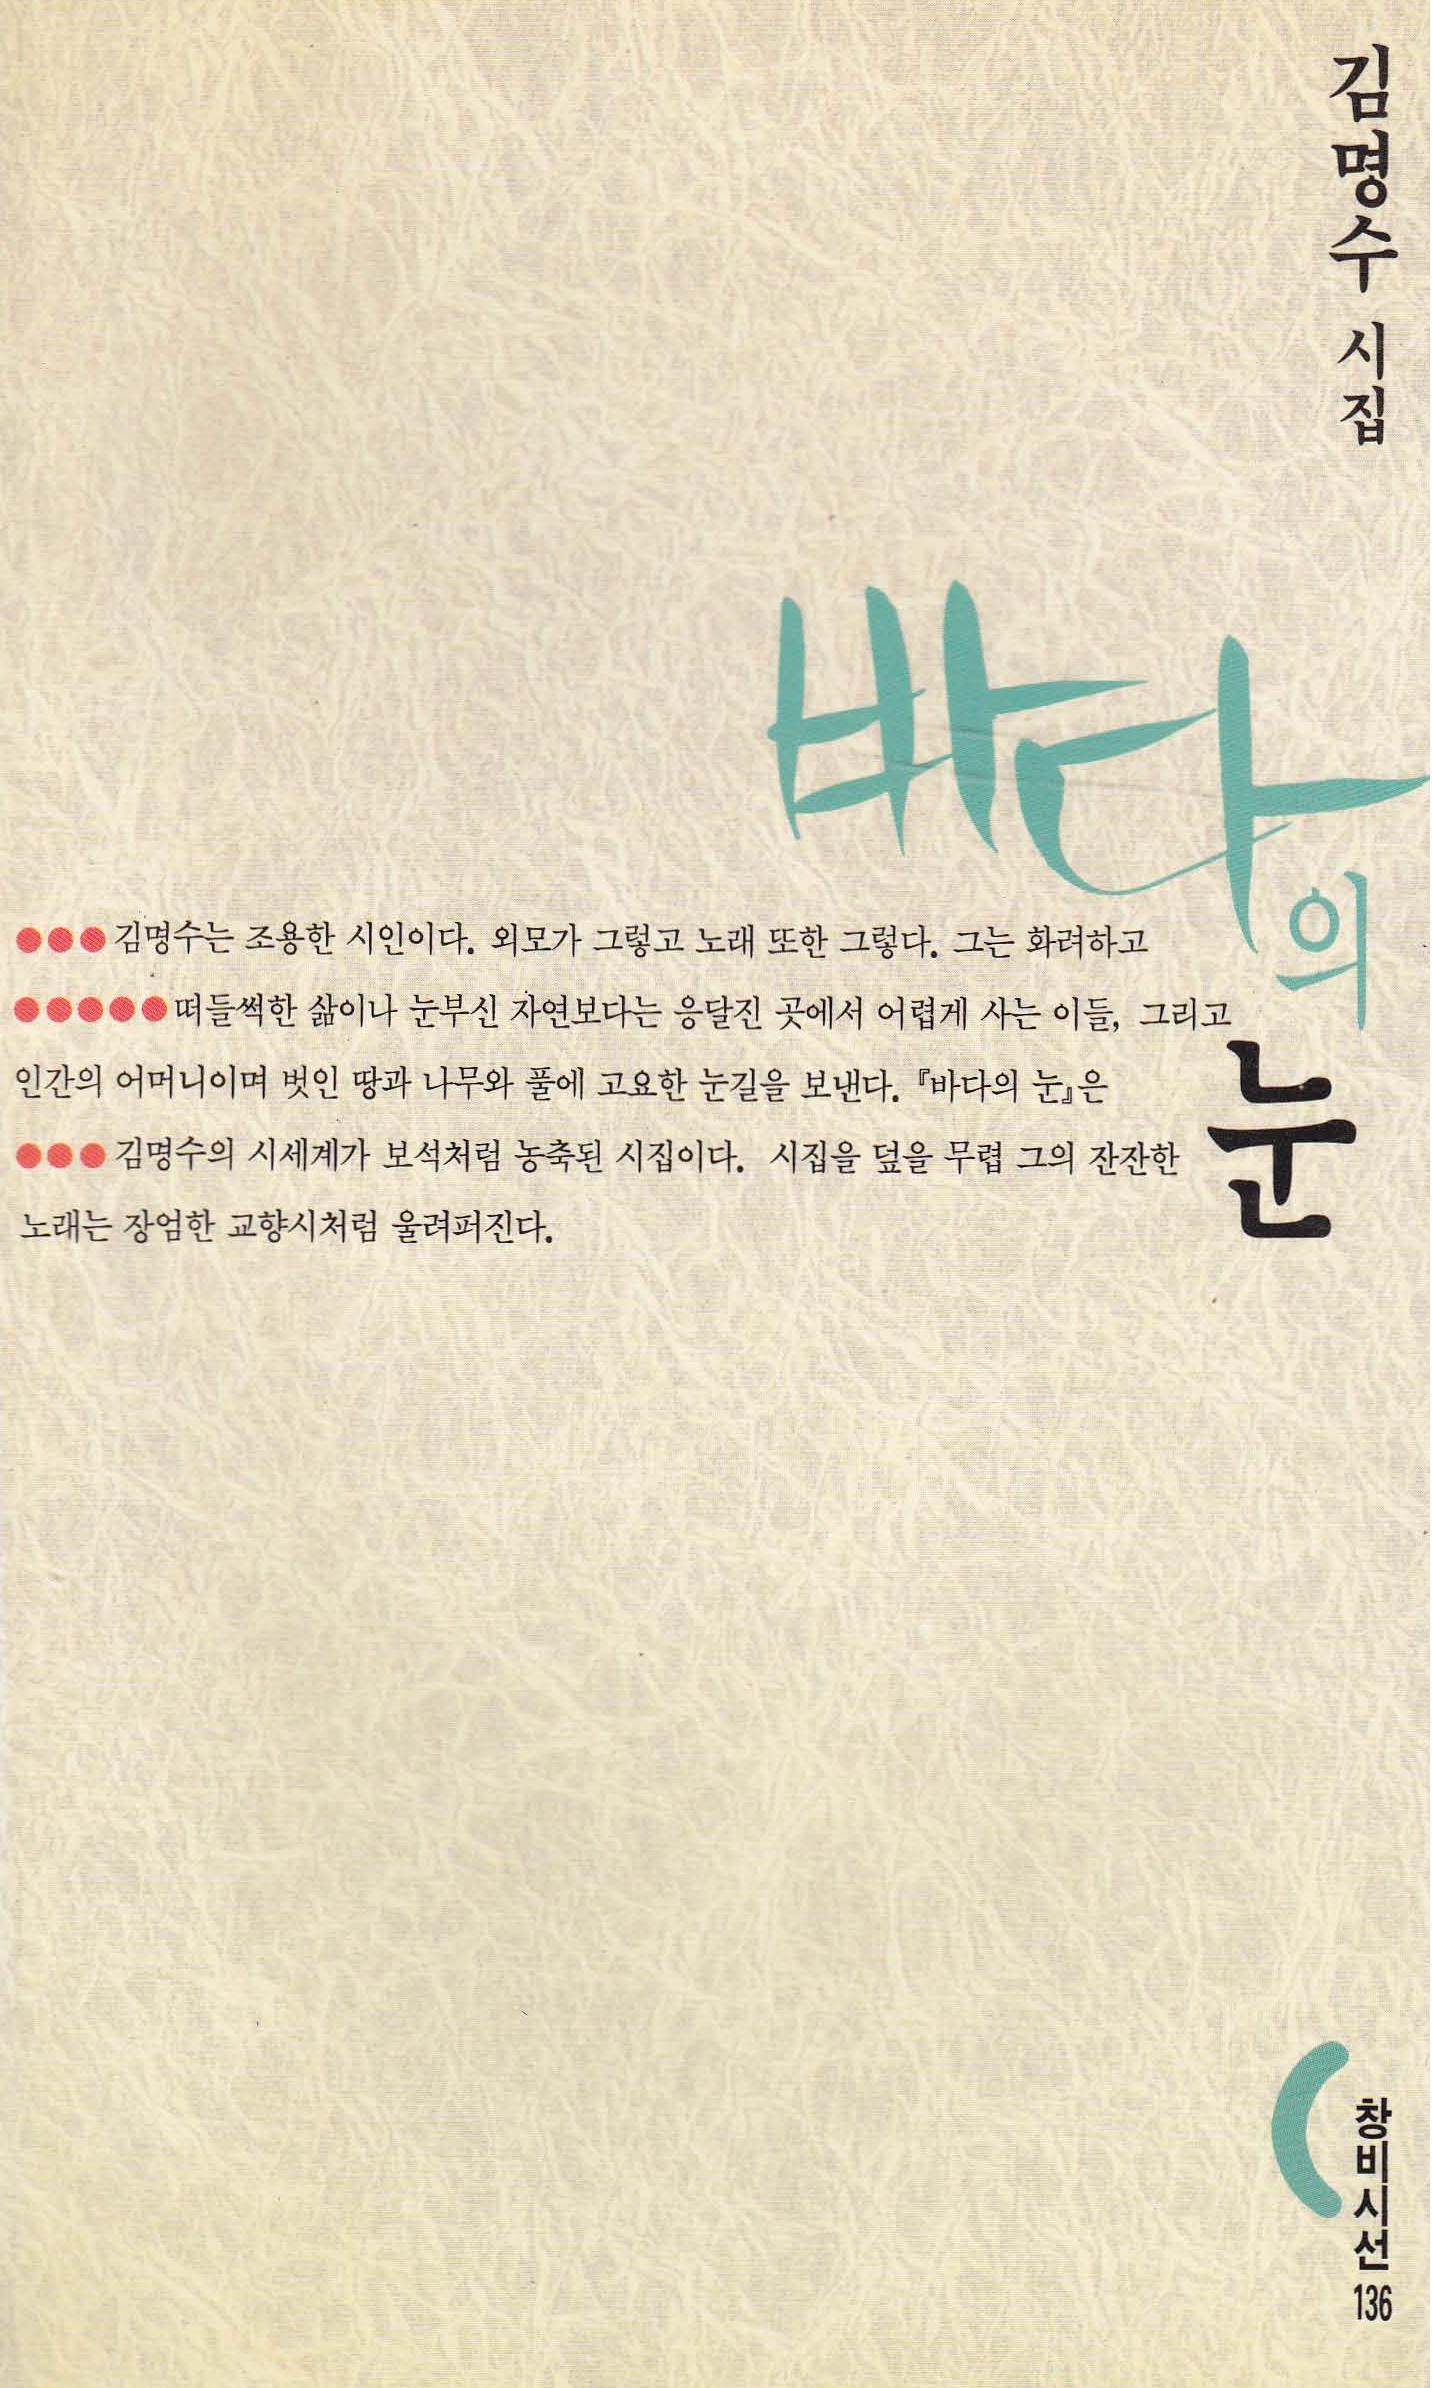 김명수 시집
바다의 눈
●●●김명수는 조용한 시인이다. 외모가 그렇고 노래 또한 그렇다. 그는 화려하고
●●●●●떠들썩한 삶이나 눈부신 자연보다는 응달진 곳에서 어렵게 사는 이들, 그리고
인간의 어머니이며 벗인 땅과 나무와 풀에 고요한 눈길을 보낸다. 『바다의 눈』은
●●●김명수의 시세계가 보석처럼 농축된 시집이다. 시집을 덮을 무렵 그의 잔잔한
노래는 장엄한 교향시처럼 울려퍼진다.
창비시선
136